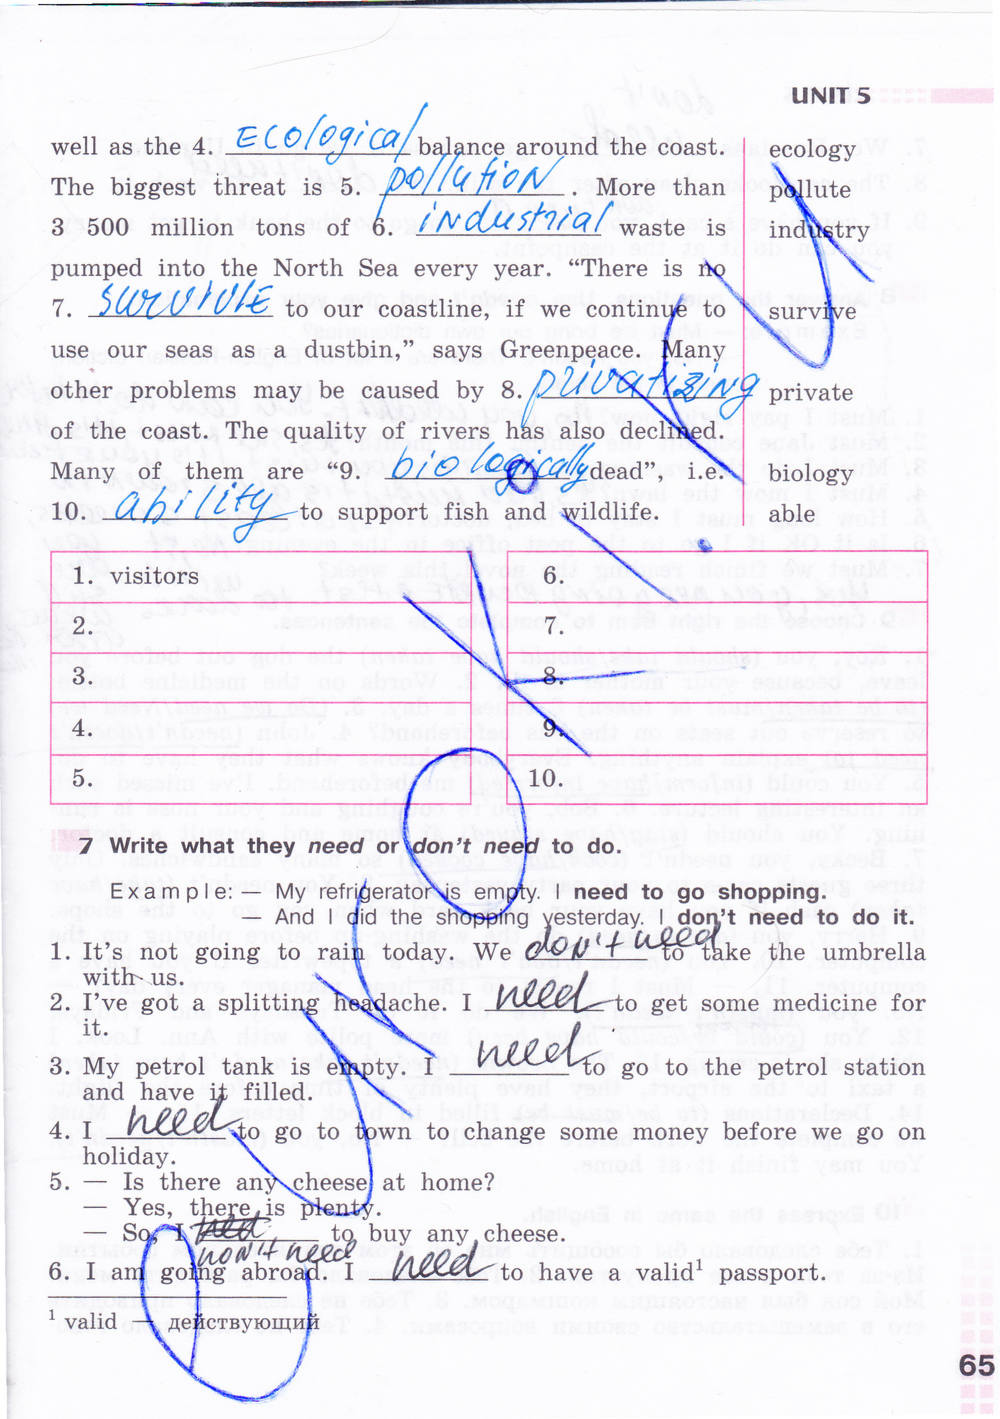 UNIT 5
well as the 4. Ecological balance around the coast. ecology
The biggest threat is 5. pollution. More than pollute
3 500 million tons of 6. industrial waste is industry
pumped into the North Sea every year. “There is no
7. survivle to our coastline, if we continue to survive
use our seas as a dustbin,” says Greenpeace. Many
other problems may be caused by 8. privatizing private
of the coast. The quality of rivers has also declined.
Many of them are “9. biologically dead”, i.e. biology
10. ability to support fish and wildlife. able
1. visitors 6.
2. 7.
3. 8.
4. 9.
5. 10.
7 Write what they need or don’t need to do.
Example: My refrigerator is empty. I need to go shopping.
And I did the shopping yesterday. I don’t need to do it.
1. It’s not going to rain today. We don't need to take the umbrella
with us.
2. I’ve got a splitting headache. I need to get some medicine for
it.
3. My petrol tank is empty. I need to go to the petrol station
and have it filled.
4. I need to go to town to change some money before we go on
holiday.
5. — Is there any cheese at home?
— Yes, there is plenty.
— So, I need to buy any cheese.
don't need
6. I am going abroad. I need to have a valid¹ passport.
¹ valid — действующий
65